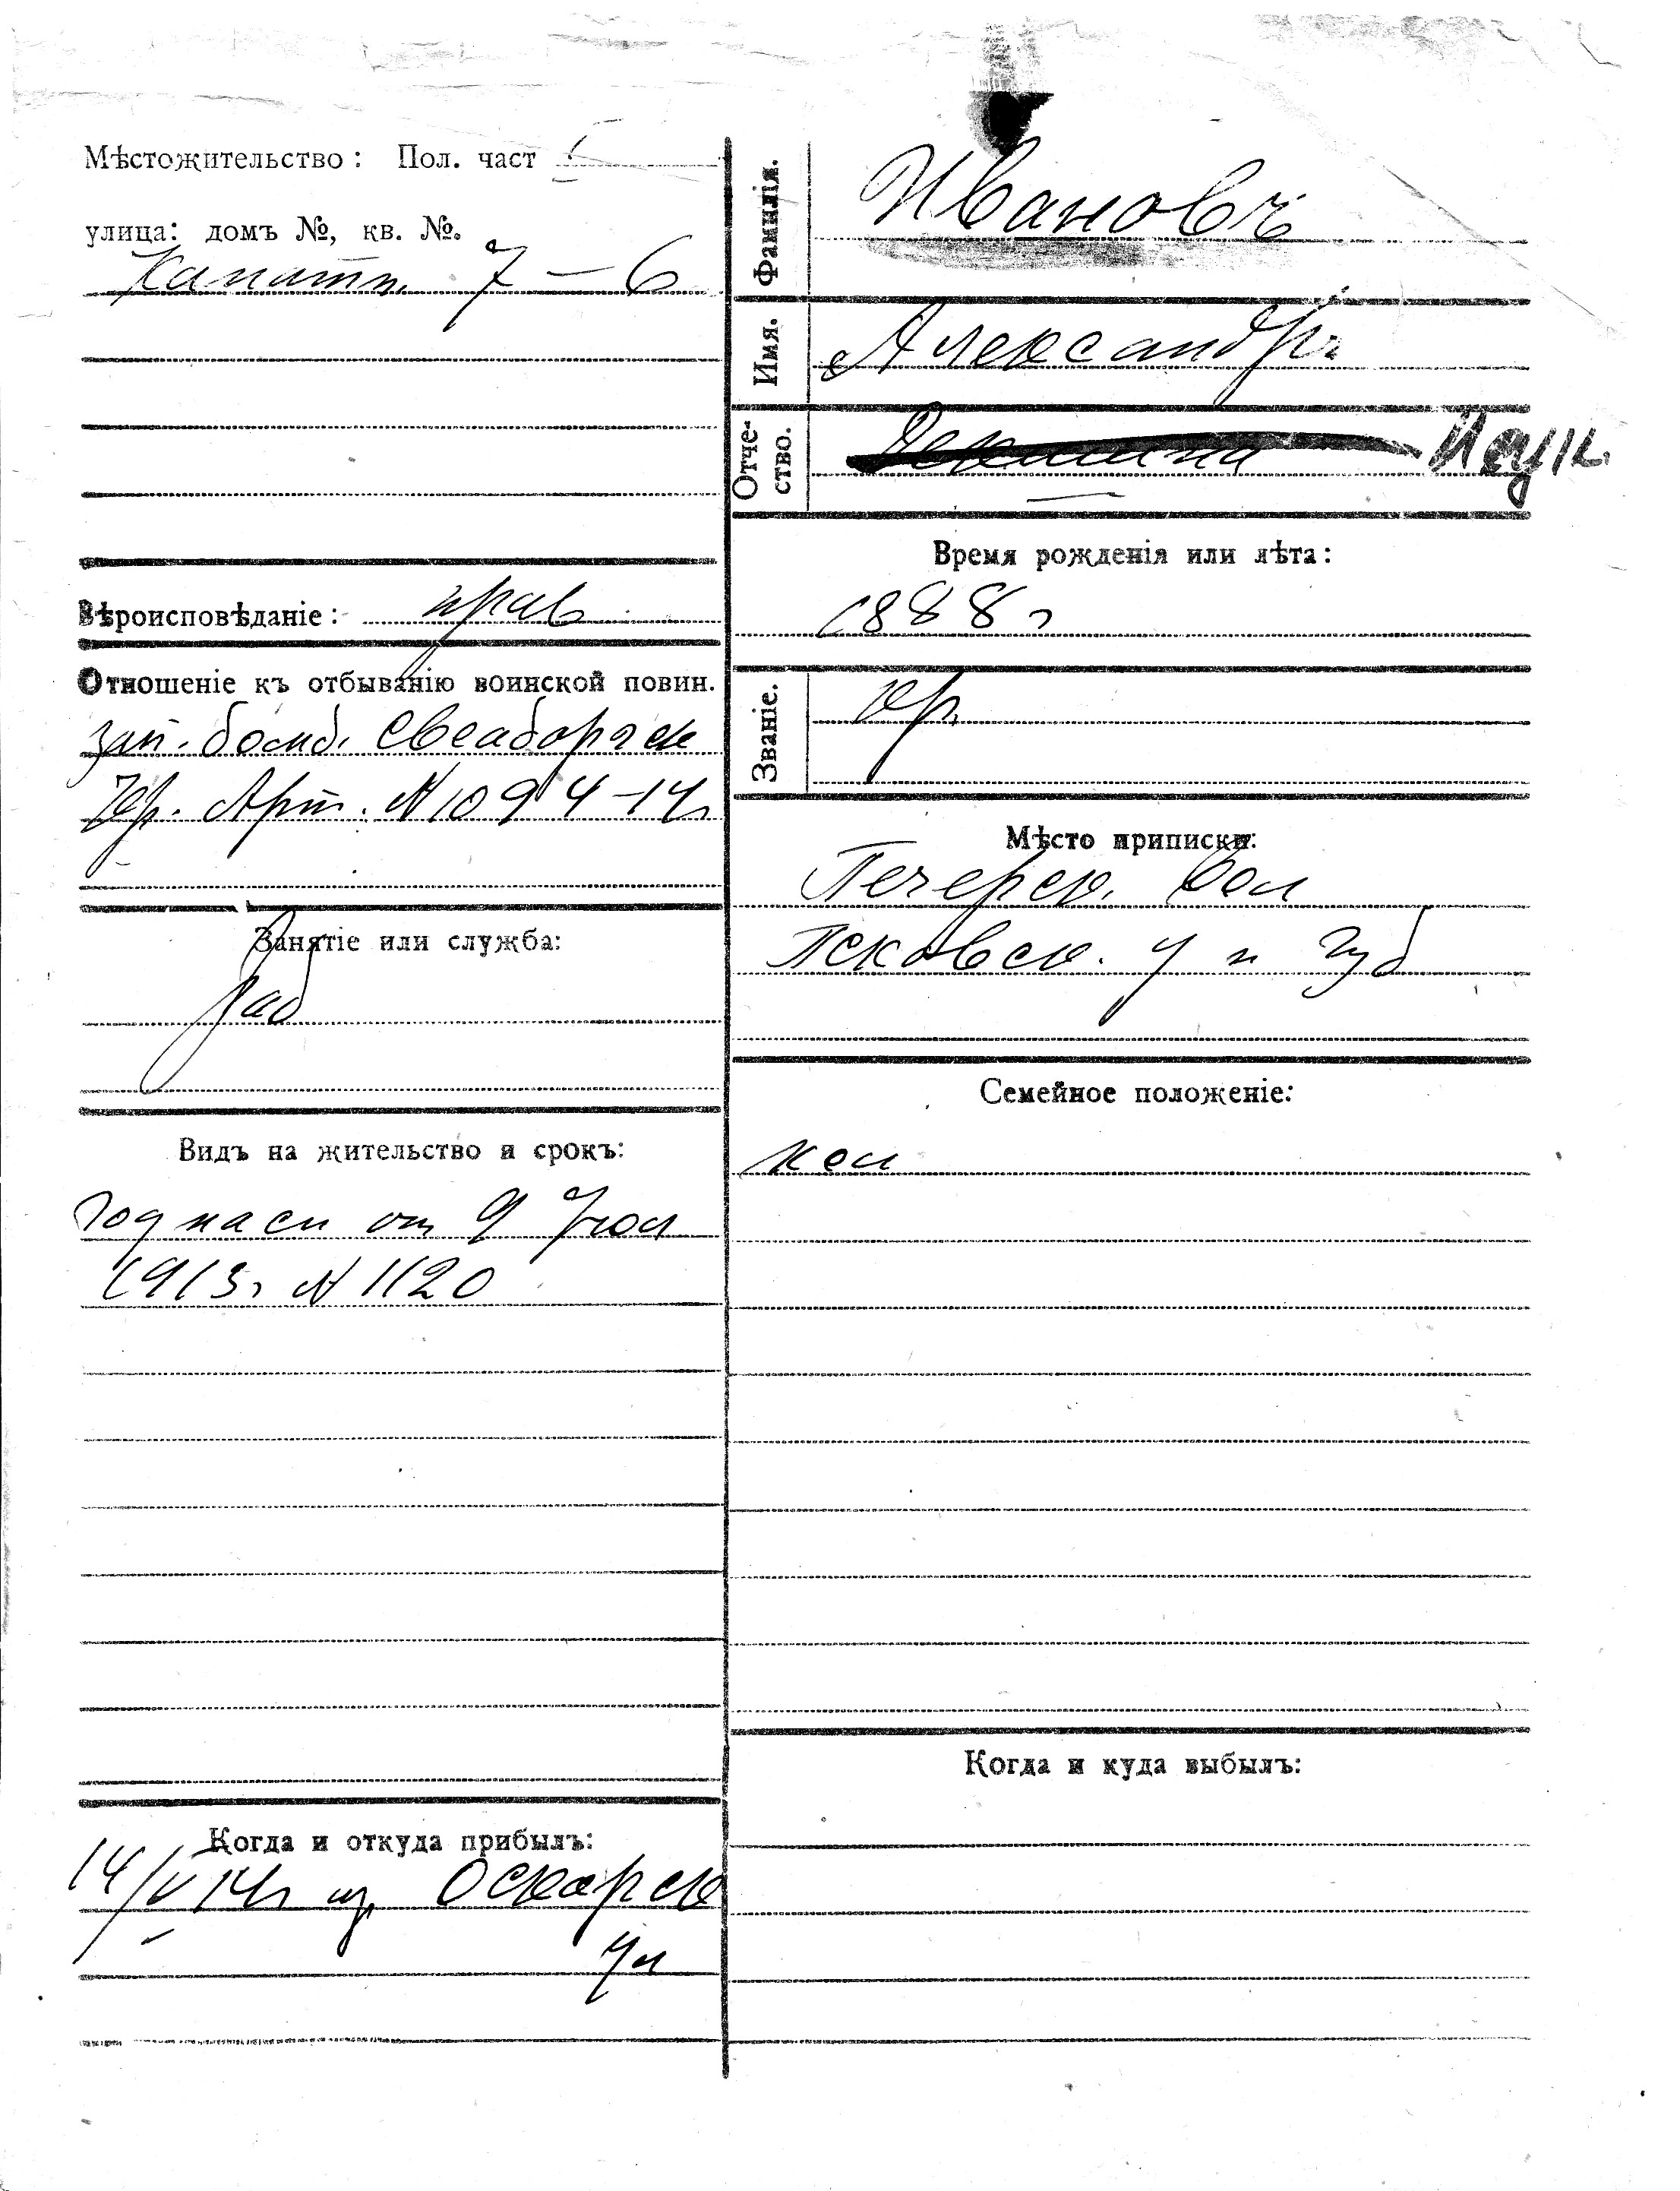 Мѣстожительство: Пол. част
улица: домъ №, кв. №.
Канатн. 7 – 6
Вѣроисповѣданіе: прав
Отношеніе къ отбыванію воинской повин.
зап. бомб. Свеаборгск
Кр. Арт. N 1094 – 14г
Занятіе или служба:
раб
Видъ на жительство и срокъ:
год насп от 9 Іюл
1913г N 1120
Когда и откуда прибылъ:
14/V 14г из Оскарск
ул
Фамилія. Ивановъ
Имя. Александръ
Отче-
ство.
Время рожденія или лѣта:
1888 г
Званіе. кр
Мѣсто приписки:
Печерск. вол
Псковск. у и губ
Семейное положеніе:
хол
Когда и куда выбылъ: